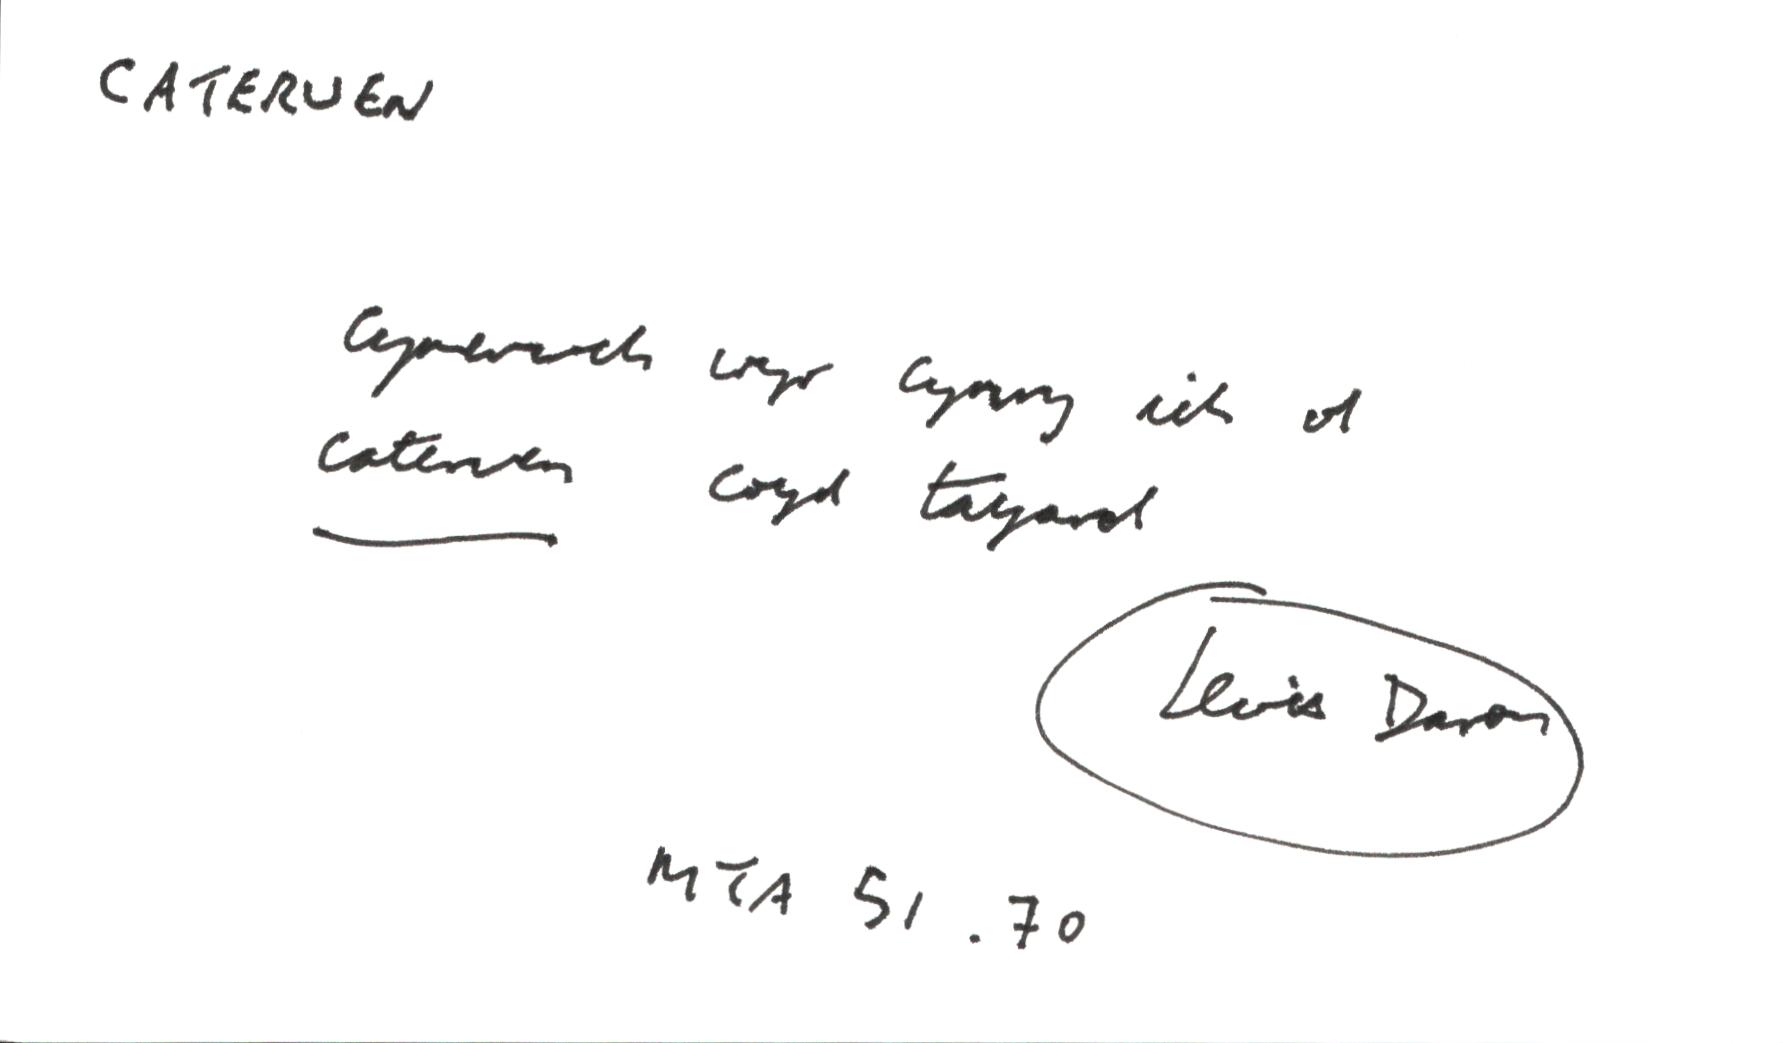 CATERVEN
Cymerwch wyr Cymry ich ol
caterven coyd tayarol
Lewis Daron
MTA 51.70